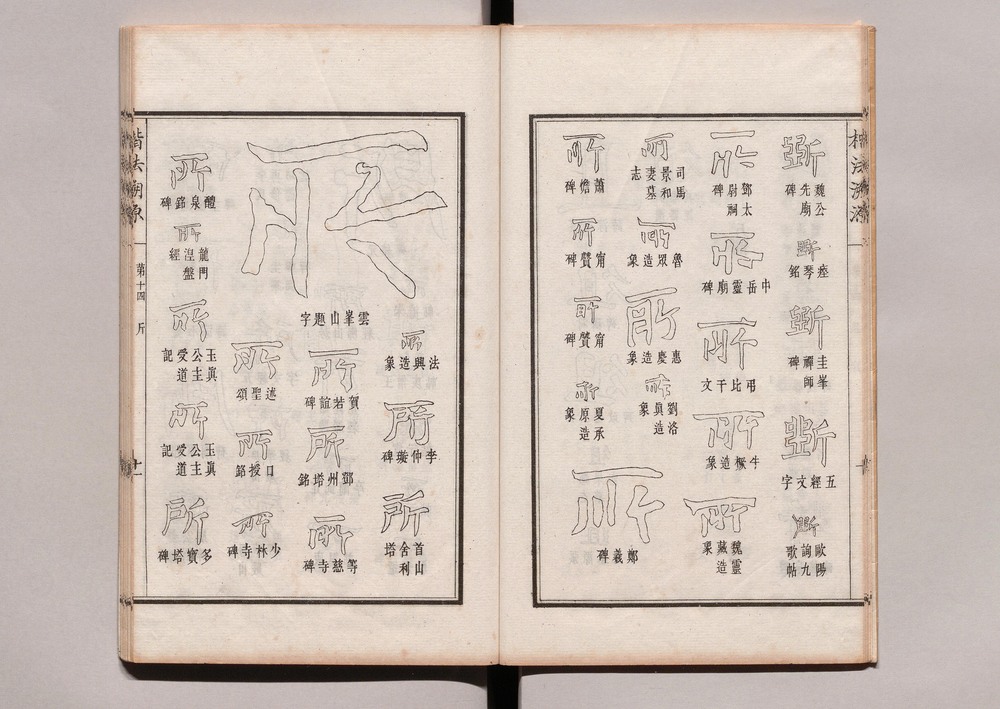 楷法溯源
斷
魏公先廟碑
斷
瘞琴銘
斷
圭峯禪師碑
斷
五經文字
斷
歐陽詢九歌帖
所
鄧太尉祠碑
所
中岳靈廟碑
所
弔比干文
所
牛橛造象
所
魏靈藏造象
所
司馬景和妻墓志
所
魯眾造象
所
惠慶造象
所
劉洛眞造象
所
蕭憺碑
所
甯贊碑
所
甯贊碑
所
夏承原造象
所
鄭羲碑
所
雲峯山題字
所
法興造象
所
李仲璇碑
所
首山舍利塔
所
賀若誼碑
所
鄧州塔銘
所
等慈寺碑
所
述聖頌
所
口授銘
所
少林寺碑
所
醴泉銘碑
所
龍門涅盤經
所
玉眞公主受道記
所
玉眞公主受道記
所
多寶塔碑
楷法溯源
第十四 斤
十一